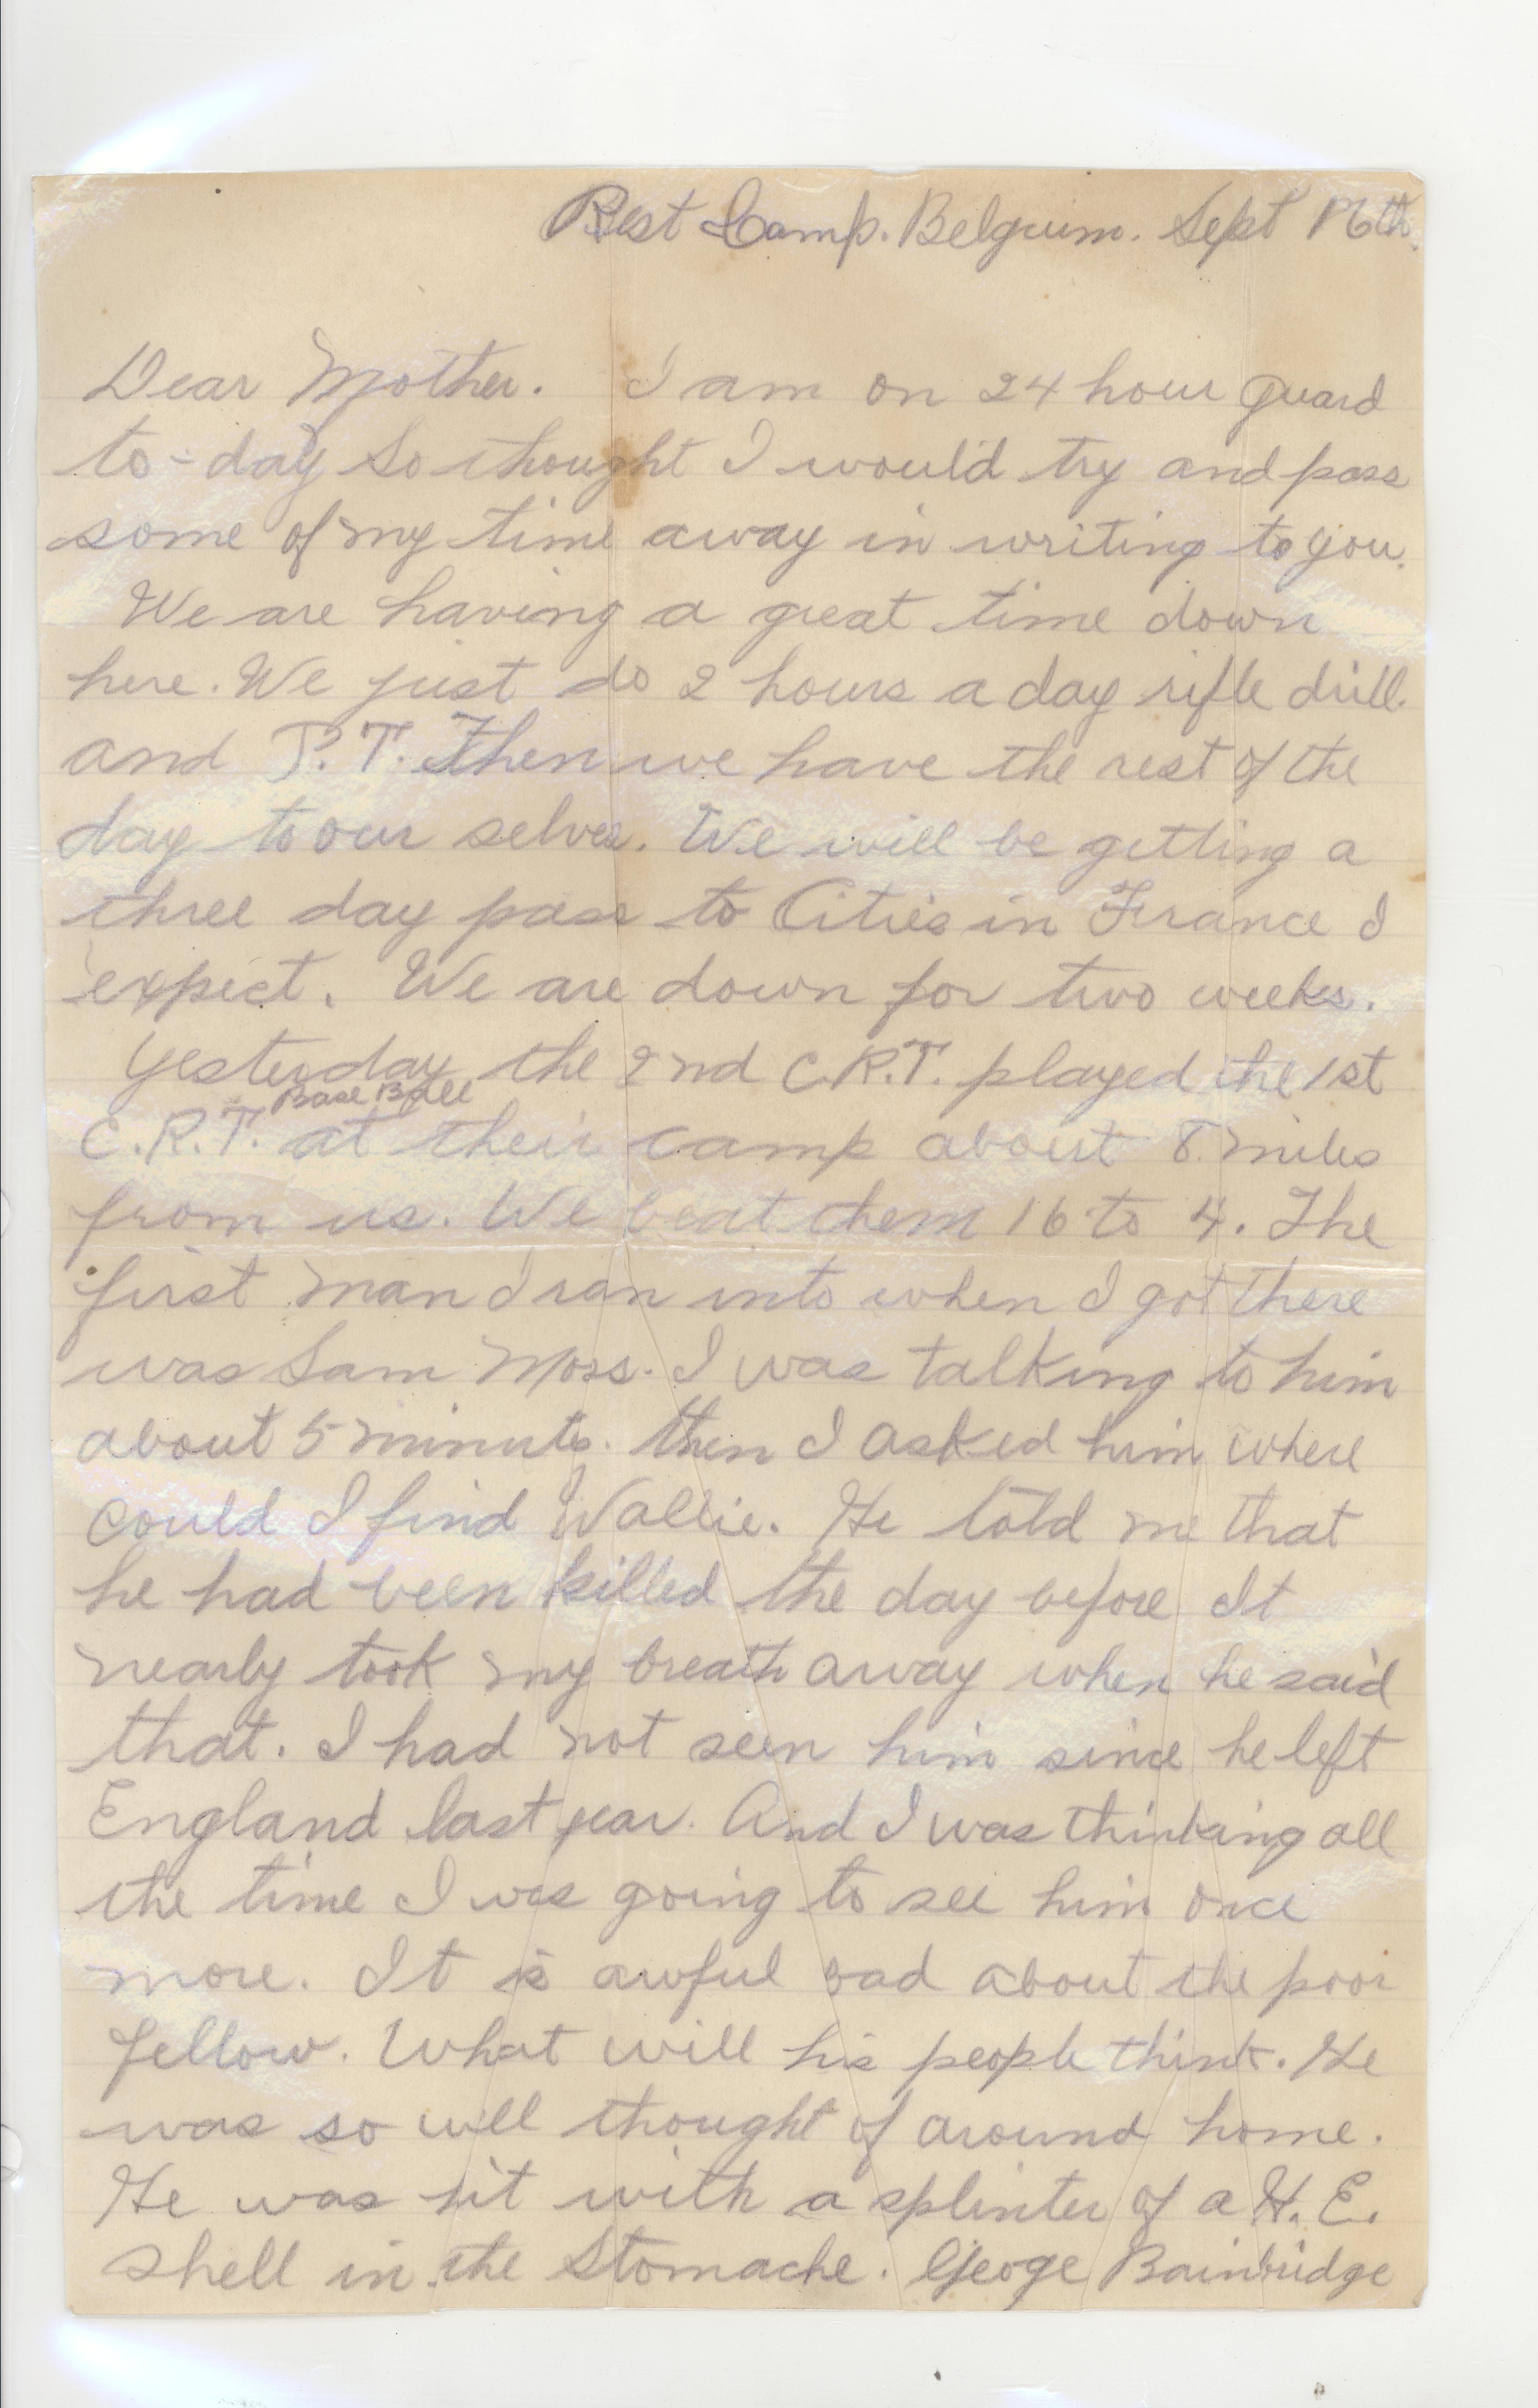 Rest Camp. Belgium. Sept 16th.
Dear Mother. I am on 24 hour guard
to-day so thought I would try and pass
some of my time away in writing to you.
We are having a great time down
here. We just do 2 hours a day rifle drill.
and P.T. Then we have the rest of the
day to our selves. We will be getting a
three day pass to Cities in France I
expect. We are down for two weeks.
Yesterday the 2nd C.R.T. played the 1st
Base Ball
C.R.T. at their camp about 8 miles
from us. We beat them 16 to 4. The
first man I ran into when I got there
was Sam Moss. I was talking to him
about 5 minuts. then I asked him where
could I find Wallie. He told me that
he had been killed the day before It
nearly took my breath away when he said
that. I had not seen him since he left
England last year. And I was thinking all
the time I was going to see him once
more. It is awful bad about the poor
fellow. What will his people think. He
was so well thought of around home.
He was hit with a splinter of a H.E.
shell in the Stomache. Geoge Bainbridge